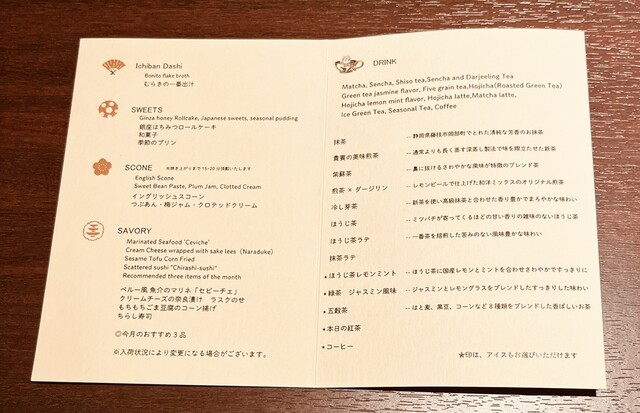 Ichiban Dashi
Bonito flake broth
むらきの一番出汁
SWEETS
Ginza honey Rollcake, Japanese sweets, seasonal pudding
銀座はちみつロールケーキ
和菓子
季節のプリン
SCONE ※焼き上がりまで15~20分頂戴いたします
English Scone
Sweet Bean Paste, Plum Jam, Clotted Cream
イングリッシュスコーン
つぶあん・梅ジャム・クロテッドクリーム
SAVORY
Marinated Seafood 'Ceviche'
Cream Cheese wrapped with sake lees (Naraduke)
Sesame Tofu Corn Fried
Scattered sushi "Chirashi-sushi"
Recommended three items of the month
ペルー風 魚介のマリネ「セビーチェ」
クリームチーズの奈良漬け ラスクのせ
もちもちごま豆腐のコーン揚げ
ちらし寿司
◎今月のおすすめ3品
※入荷状況により変更になる場合がございます。
DRINK
Matcha, Sencha, Shiso tea,Sencha and Darjeeling Tea
Green tea jasmine flavor, Five grain tea,Hojicha(Roasted Green Tea)
Hojicha lemon mint flavor, Hojicha latte,Matcha latte,
Ice Green Tea, Seasonal Tea, Coffee
抹茶 -- 静岡県藤枝市岡部町でとれた清純な芳香のお抹茶
貴賓の美味煎茶 -- 通常よりも長く蒸す深蒸し製法で味を際立たせた新茶
紫蘇茶 -- 鼻に抜けるさわやかな風味が特徴のブレンド茶
煎茶 × ダージリン -- レモンピールで仕上げた和洋ミックスのオリジナル煎茶
冷し芽茶 -- 新茶を使い高級抹茶と合わせた香り豊かでまろやかな味わい
ほうじ茶 -- ミツバチが寄ってくるほどの甘い香りの雑味のないほうじ茶
ほうじ茶ラテ -- 一番茶を焙煎した苦みのない風味豊かな味わい
抹茶ラテ
★ほうじ茶レモンミント -- ほうじ茶に国産レモンとミントを合わせさわやかですっきりに
★緑茶 ジャスミン風味 -- ジャスミンとレモングラスをブレンドしたすっきりした味わい
★五穀茶 -- はと麦、黒豆、コーンなど8種類をブレンドした香ばしいお茶
★本日の紅茶
★コーヒー
★印は、アイスもお選びいただけます